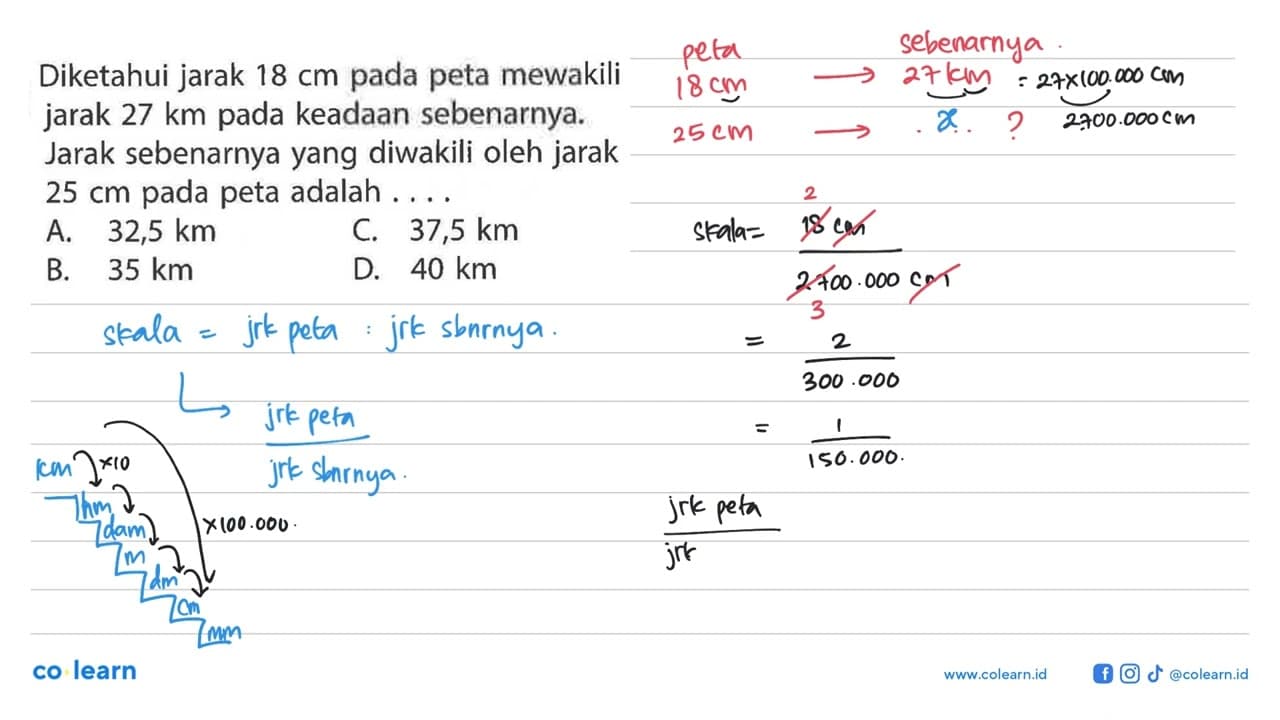 Diketahui jarak 18 cm pada peta mewakili
jarak 27 km pada keadaan sebenarnya.
Jarak sebenarnya yang diwakili oleh jarak
25 cm pada peta adalah . . . .
A. 32,5 km C. 37,5 km
B. 35 km D. 40 km
skala = jrk peta : jrk sbnrnya.
jrk peta
jrk sbnrnya.
km ×10
hm
dam ×100.000.
m
dm
cm
mm
peta sebenarnya.
18 cm → 27 km = 27×100.000 cm
25 cm → . x . . ? 2700.000 cm
2
skala = 18 cm
2700.000 cm
3
= 2
300.000
= 1
150.000.
jrk peta
jrk
co learn
www.colearn.id @colearn.id